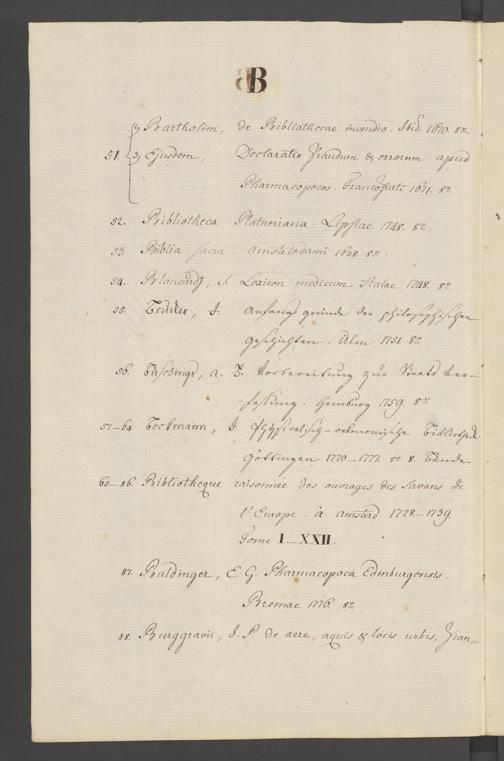 B
51. 2, Bartholini, de Bibliothecae incendio. Ibid. 1670. 8º
3, Ejusdem, Declaratio fraudum & errorum apud
Pharmacopoeos. Francofurti 1671. 8º
52. Bibliotheca Platneriana. Lipsiae 1748. 8º
53. Biblia sacra. Amstelodami 1648. 8º
54. Blancardj, S. Lexicon medicum. Halae 1748. 8º
55. J. Anfangsgründe der philosophischen
Geschichten. Ulm 1751. 8º
56. Büschings, A. F. Vorbereitung zur Staats Ver-
fassung. Hamburg 1759. 8º
57–64. Beckmann, J. Physicalisch-oekonomische Bibliothek.
Göttingen 1770–1777. 8º 8. Bände.
65–86. Bibliotheque raisonnée des ouvrages des Savans de
l'Europe. à Amsterd. 1728–1739
Tome I–XXII.
87. Baldinger, E. G. Pharmacopoea Edinburgensis.
Bremae 1776. 8º
88. Burggravii, J. P. de aere, aquis & locis urbis. Fran-